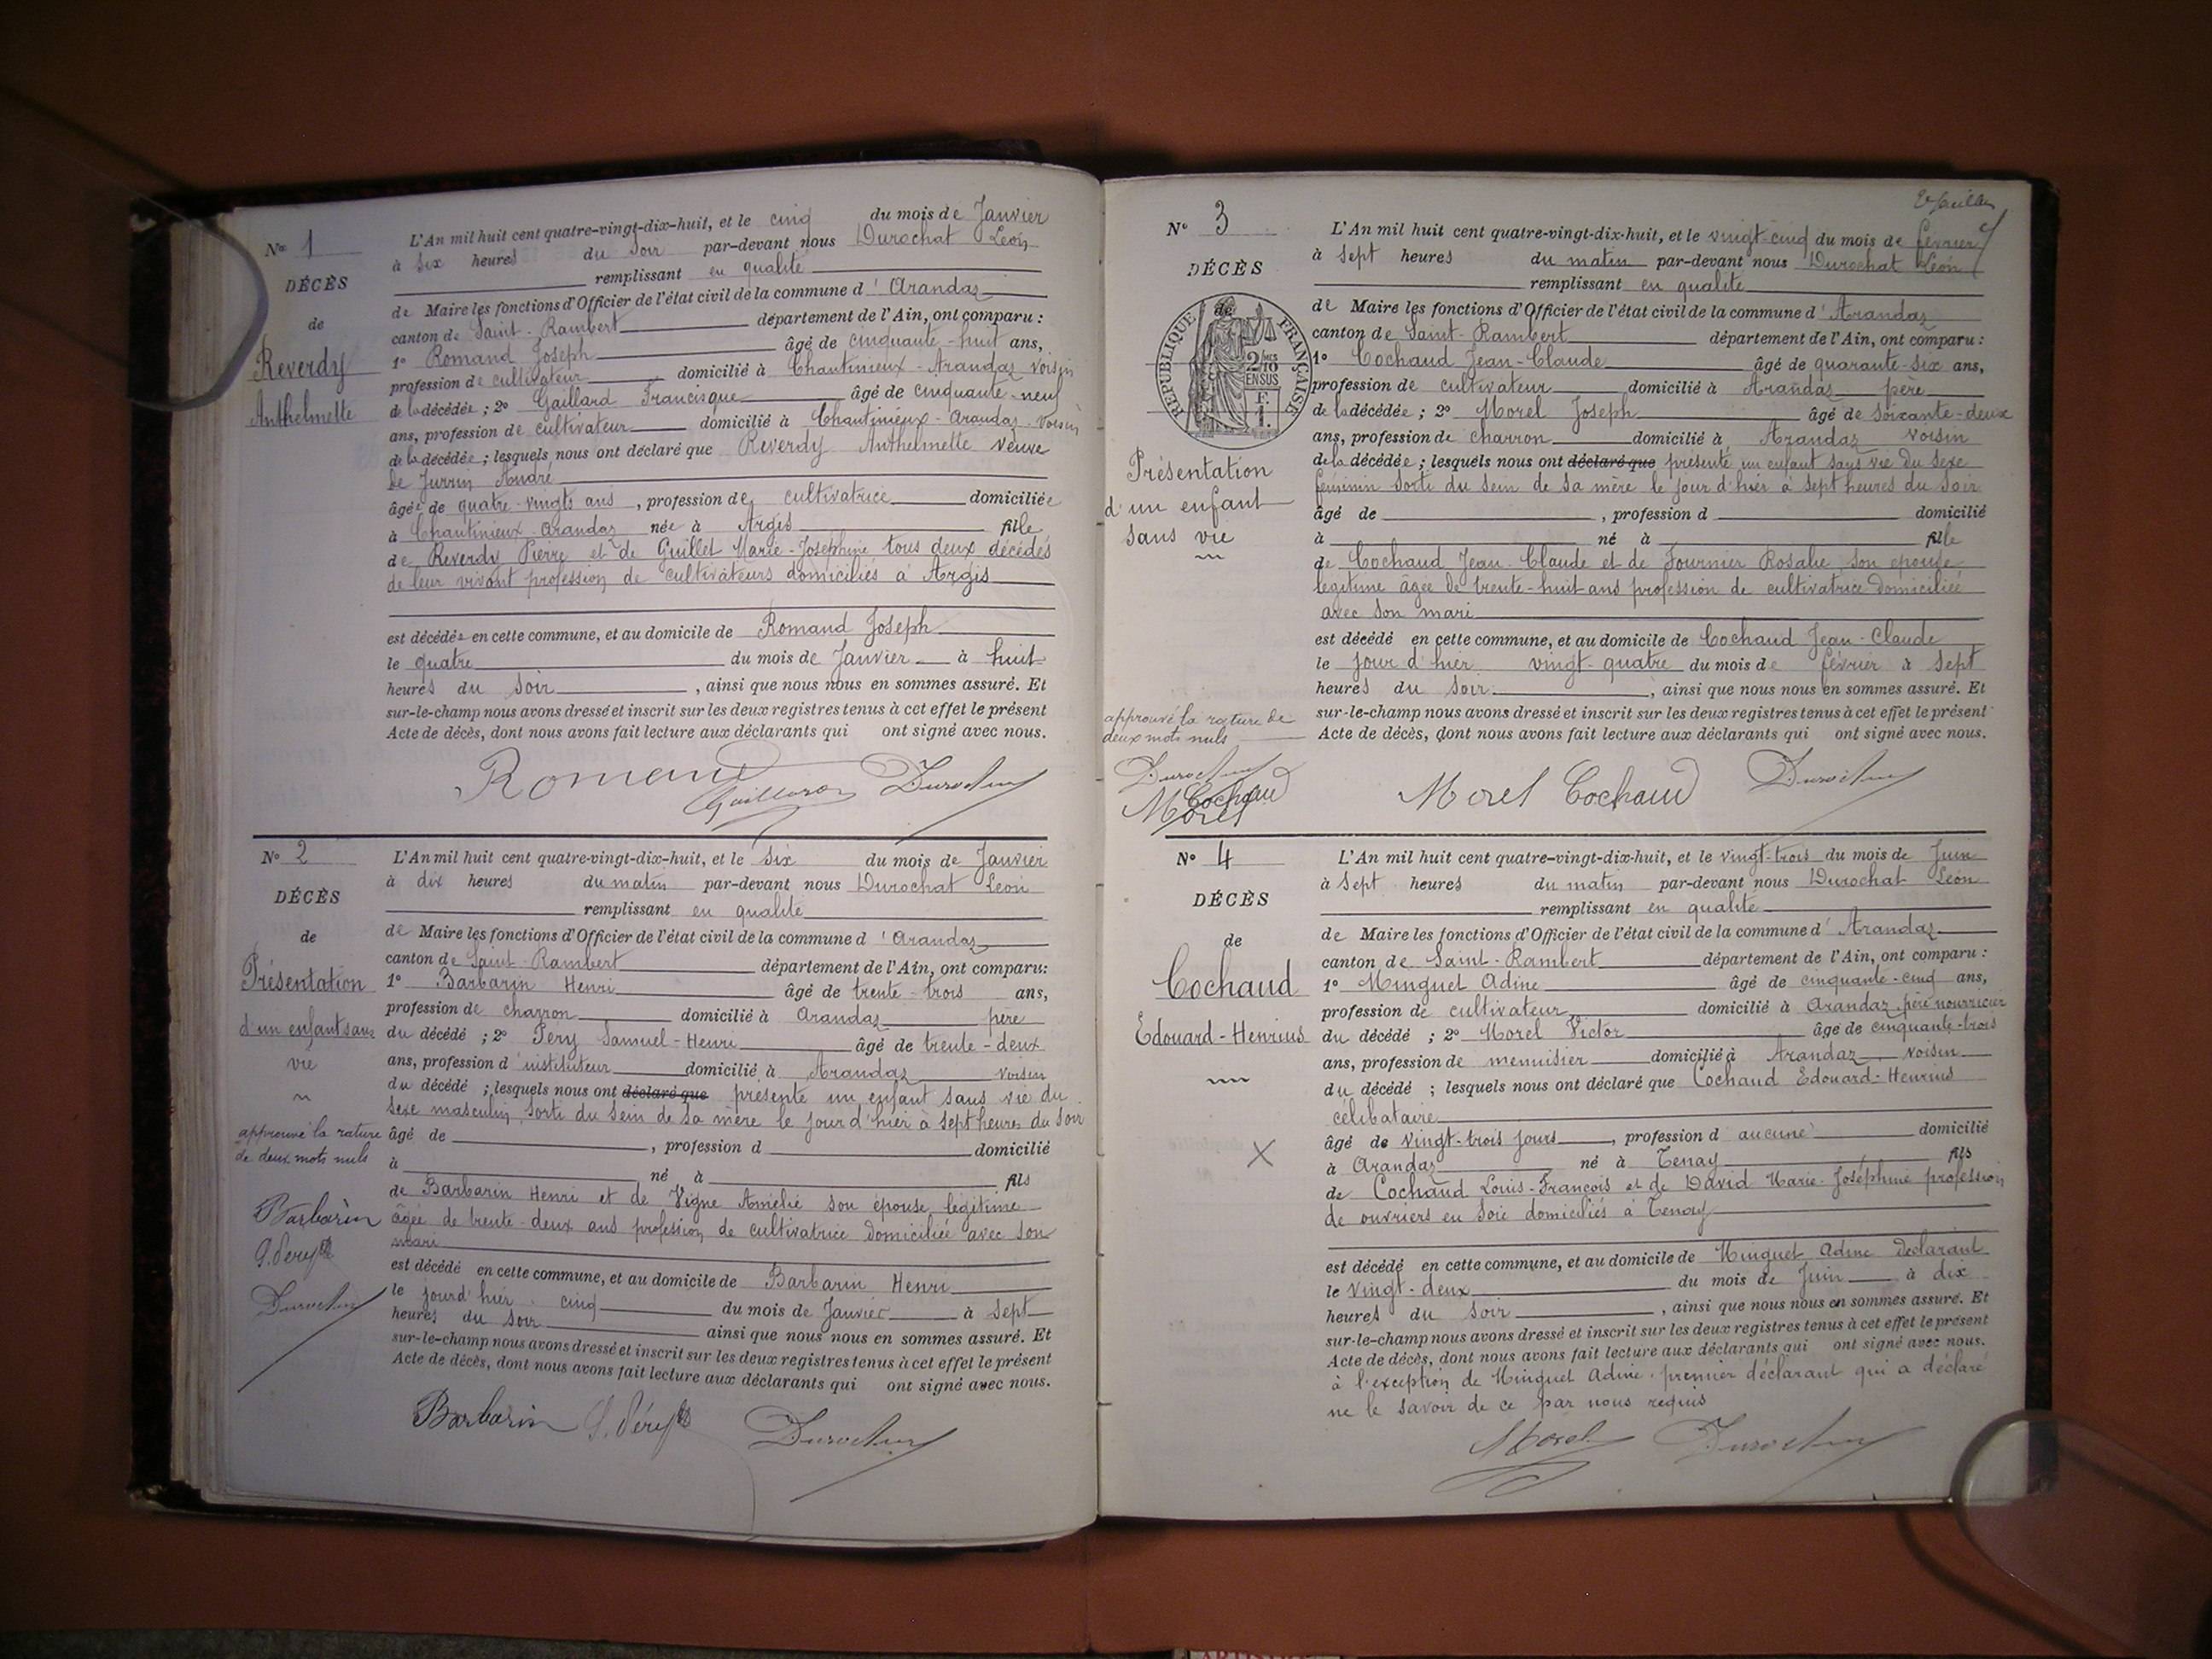 N° 1
DÉCÈS
de
Reverdy
Anthelmette
L'An mil huit cent quatre-vingt-dix-huit, et le cinq du mois de Janvier
à six heures du soir par-devant nous Durochat Léon
remplissant en qualité
de Maire les fonctions d'Officier de l'état civil de la commune d'Arandas
canton de Saint-Rambert département de l'Ain, ont comparu :
1° Romand Joseph âgé de cinquante-huit ans,
profession de cultivateur domicilié à Chantinieux-Arandas voisin
de la décédée ; 2° Gaillard Francisque âgé de cinquante-neuf
ans, profession de cultivateur domicilié à Chantinieux-Arandas voisin
de la décédée ; lesquels nous ont déclaré que Reverdy Anthelmette veuve
de Jurrin André
âgée de quatre-vingts ans, profession de cultivatrice domiciliée
à Chantinieux-Arandas née à Argis fille
de Reverdy Pierre et de Guillet Marie-Joséphine tous deux décédés
de leur vivant profession de cultivateurs domiciliés à Argis
est décédée en cette commune, et au domicile de Romand Joseph
le quatre du mois de Janvier à huit
heures du soir, ainsi que nous nous en sommes assuré. Et
sur-le-champ nous avons dressé et inscrit sur les deux registres tenus à cet effet le présent
Acte de décès, dont nous avons fait lecture aux déclarants qui ont signé avec nous.
Romand
Durochat
N° 2
DÉCÈS
de
Présentation
d'un enfant sans
vie
approuvé la rature
de deux mots nuls
Barbarin
S. Péry
Durochat
L'An mil huit cent quatre-vingt-dix-huit, et le six du mois de Janvier
à dix heures du matin par-devant nous Durochat Léon
remplissant en qualité
de Maire les fonctions d'Officier de l'état civil de la commune d'Arandas
canton de Saint-Rambert département de l'Ain, ont comparu :
1° Barbarin Henri âgé de trente-trois ans,
profession de charron domicilié à Arandas père
du décédé ; 2° Péry Samuel-Henri âgé de trente-deux
ans, profession d'instituteur domicilié à Arandas voisin
du décédé ; lesquels nous ont déclaré que présenté un enfant sans vie du
sexe masculin sorti du sein de sa mère le jour d'hier à sept heures du soir
âgé de , profession d domicilié
à né à fils
de Barbarin Henri et de Vigne Amélie son épouse légitime
âgée de trente-deux ans profession de cultivatrice domiciliée avec son
mari
est décédé en cette commune, et au domicile de Barbarin Henri
le jour d'hier cinq du mois de Janvier à sept
heures du soir ainsi que nous nous en sommes assuré. Et
sur-le-champ nous avons dressé et inscrit sur les deux registres tenus à cet effet le présent
Acte de décès, dont nous avons fait lecture aux déclarants qui ont signé avec nous.
Barbarin S. Péry Durochat
N° 3
DÉCÈS
de
RÉPUBLIQUE FRANÇAISE
2/10
EN SUS
F.
1.
Présentation
d'un enfant
sans vie
approuvé la rature de
deux mots nuls
Durochat
Cochaud
Morel
L'An mil huit cent quatre-vingt-dix-huit, et le vingt-cinq du mois de février
à sept heures du matin par-devant nous Durochat Léon
remplissant en qualité
de Maire les fonctions d'Officier de l'état civil de la commune d'Arandas
canton de Saint-Rambert département de l'Ain, ont comparu :
1° Cochaud Jean-Claude âgé de quarante-six ans,
profession de cultivateur domicilié à Arandas père
de la décédée ; 2° Morel Joseph âgé de soixante-deux
ans, profession de charron domicilié à Arandas voisin
de la décédée ; lesquels nous ont déclaré que présenté un enfant sans vie du sexe
féminin sorti du sein de sa mère le jour d'hier à sept heures du soir
âgé de , profession d domicilié
à né à fille
de Cochaud Jean-Claude et de Fournier Rosalie son épouse
légitime âgée de trente-huit ans profession de cultivatrice domiciliée
avec son mari
est décédé en cette commune, et au domicile de Cochaud Jean-Claude
le jour d'hier vingt-quatre du mois de février à sept
heures du soir, ainsi que nous nous en sommes assuré. Et
sur-le-champ nous avons dressé et inscrit sur les deux registres tenus à cet effet le présent
Acte de décès, dont nous avons fait lecture aux déclarants qui ont signé avec nous.
Morel Cochaud Durochat
N° 4
DÉCÈS
de
Cochaud
Edouard-Henrius
L'An mil huit cent quatre-vingt-dix-huit, et le vingt-trois du mois de Juin
à sept heures du matin par-devant nous Durochat Léon
remplissant en qualité
de Maire les fonctions d'Officier de l'état civil de la commune d'Arandas
canton de Saint-Rambert département de l'Ain, ont comparu :
1° Minguet Adine âgé de cinquante-cinq ans,
profession de cultivateur domicilié à Arandas père nourricier
du décédé ; 2° Morel Victor âgé de cinquante-trois
ans, profession de menuisier domicilié à Arandas voisin
du décédé ; lesquels nous ont déclaré que Cochaud Edouard-Henrius
célibataire
âgé de vingt-trois jours, profession d aucune domicilié
à Arandas né à Tenay fils
de Cochaud Louis-François et de David Marie-Joséphine profession
de ouvriers en soie domiciliés à Tenay
est décédé en cette commune, et au domicile de Minguet Adine déclarant
le vingt-deux du mois de Juin à dix
heures du soir, ainsi que nous nous en sommes assuré. Et
sur-le-champ nous avons dressé et inscrit sur les deux registres tenus à cet effet le présent
Acte de décès, dont nous avons fait lecture aux déclarants qui ont signé avec nous.
à l'exception de Minguet Adine, premier déclarant qui a déclaré
ne le savoir de ce par nous requis
Morel Durochat